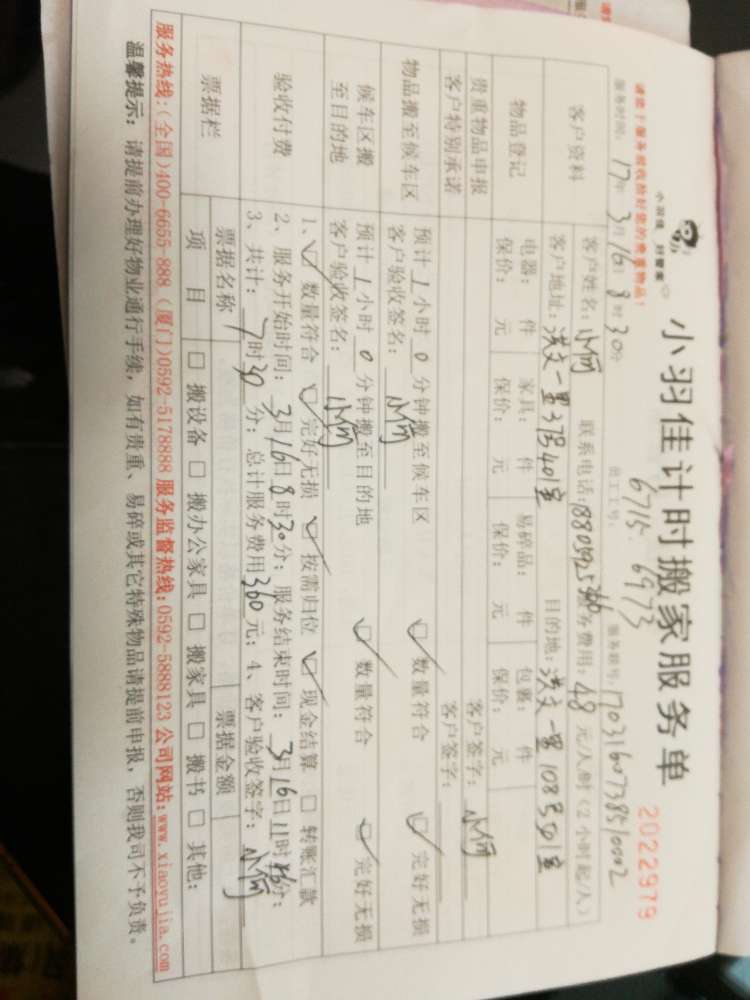 小羽佳 好管家
小羽佳计时搬家服务单
2022979
请您于服务前收拾好您的贵重物品！
6715. 6973
服务时间：17年3月16日8时30分 员工工号： 服务联号：1703160738510002
客户资料
客户姓名：小何 联系电话： 服务费用：48元/人/时（2小时起/人）
客户地址：洪文一里37号401室 目的地：洪文一里108号501室
物品登记
电器： 件 家具： 件 易碎品： 件 包裹： 件
保价： 元 保价： 元 保价： 元 保价： 元
贵重物品申报 客户签字：小何
客户特别承诺 客户签字：
物品搬至候车区
预计1小时0分钟搬至候车区 ☑数量符合 ☑完好无损
客户验收签名：小何
候车区搬至目的地
预计1小时0分钟搬至目的地 ☑数量符合 ☑完好无损
客户验收签名：小何
验收付费
1、☑数量符合 ☑完好无损 ☑按需归位 ☑现金结算 □转账汇款
2、服务开始时间：3月16日8时30分；服务结束时间：3月16日11时分；
3、共计：7时30分；总计服务费用360元；4、客户验收签字：小何
票据栏
票据名称 票据金额
项目 □搬设备 □搬办公家具 □搬家具 □搬书 □其他：
服务热线：（全国）400-6655-888（厦门）0592-5178888 服务监督热线：0592-5888123 公司网站：www.xiaoyujia.com
温馨提示：请提前办理好物业通行手续，如有贵重、易碎或其它特殊物品请提前申报，否则我司不予负责。